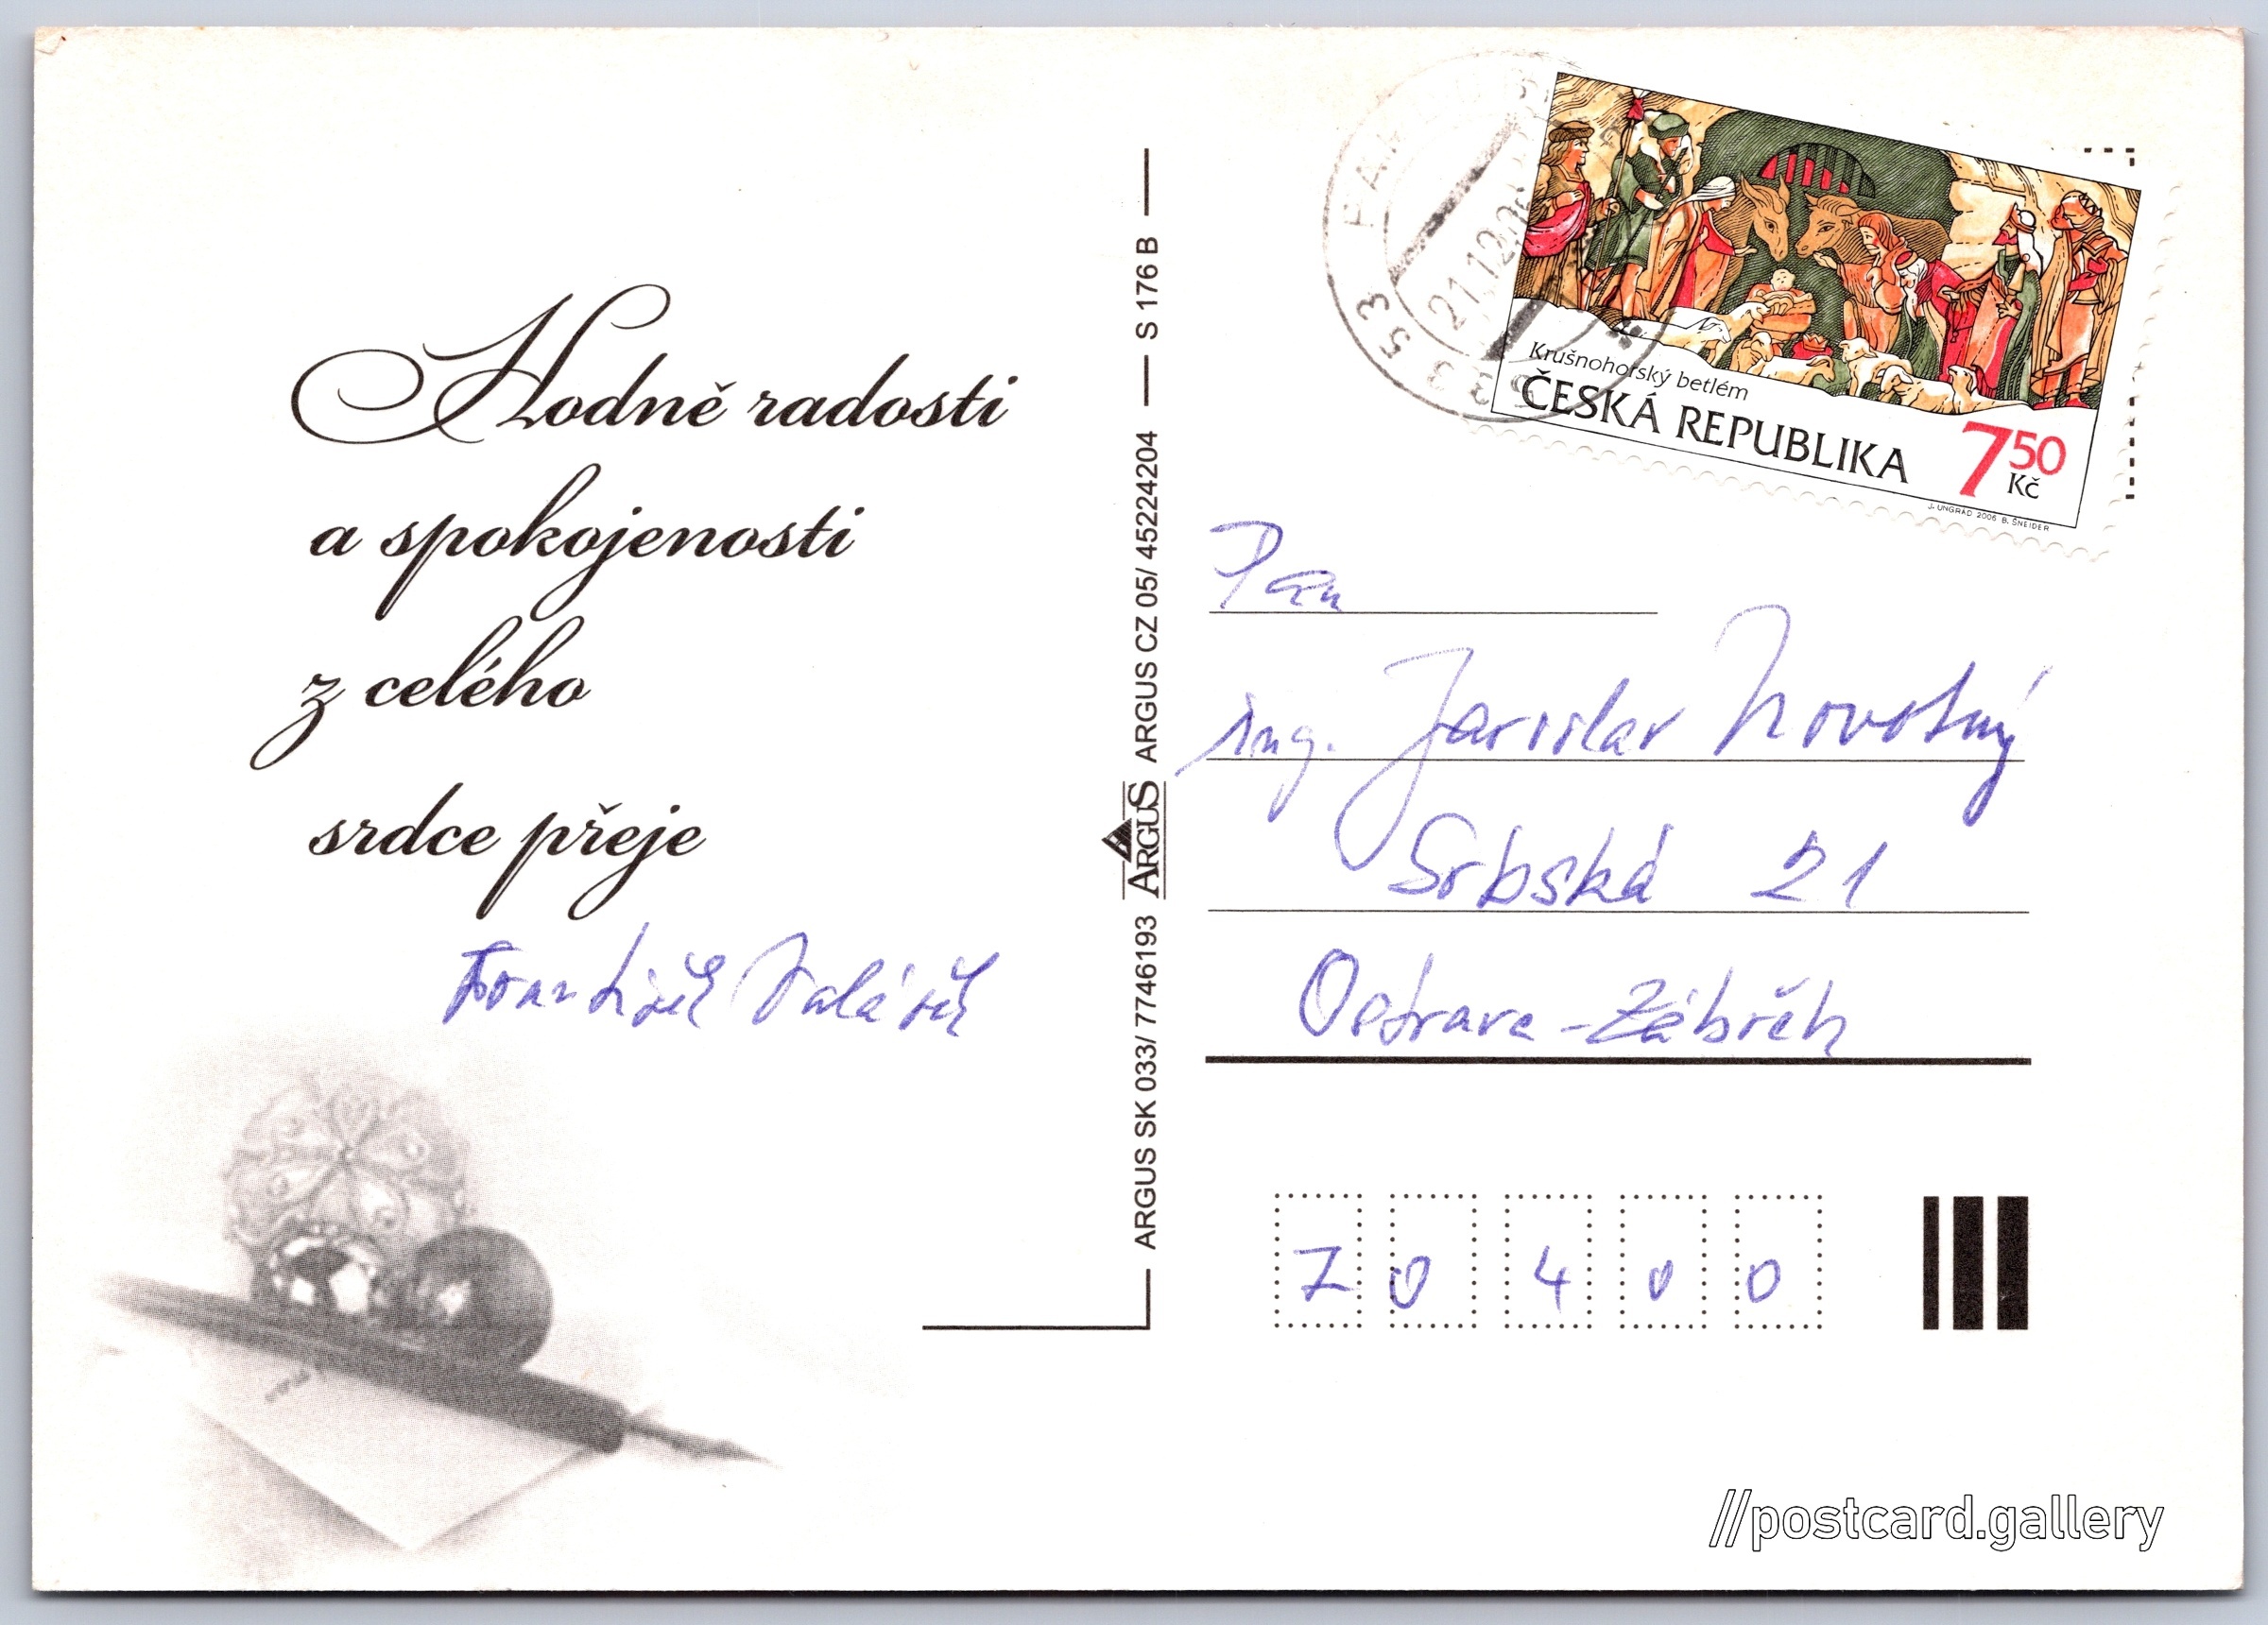 Hodně radosti
a spokojenosti
z celého
srdce přeje
František
ARGUS SK 033/ 7746193 ARGUS ARGUS CZ 05/ 45224204 S 176 B
533 53
21.12.
Krušnohorský betlém
ČESKÁ REPUBLIKA 7 50 Kč
J. UNGRAD 2006 B. ŠNEIDER
Pan
ing. Jaroslav Novotný
Srbská 21
Ostrava - Zábřeh
70 400
//postcard.gallery